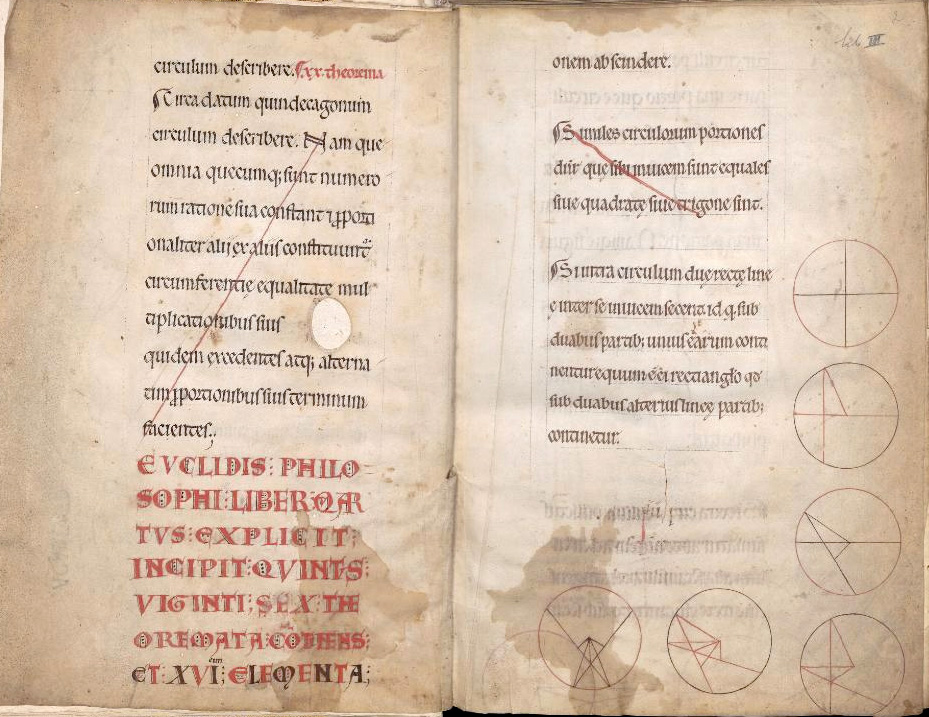 circulum describere. xx. theorema
Circa datum quindecagonum
circulum describere. Nam que
omnia quecumq; sunt numero
rum ratione sua constant ꝓporti
onaliter alii ex aliis constituunt᷒
circumferentie equalitate mul
tiplicationibus suis
quidem excedentes atq; alterna
tim ꝓportionibus suis terminum
facientes;
EVCLIDIS: PHILO
SOPHI: LIBER: QVAR
TVS: EXPLICIT:
INCIPIT: QVINTVS:
VIGINTI: SEX: THE
OREMATA: COTINENS:
ET: XVI: cum ELEMENTA:
lib III
onem abscindere.
Similes circulorum portiones
dnr̄ que sibi inuicem sunt equales
siue quadratę siue trigone sint.
Si intra circulum duę rectę line
ę inter se inuicem secent id q, sub
duabus partib; unius earum conti
netur equum ē ei rectianglo qđ
sub duabus alterius lineę partib;
continetur.